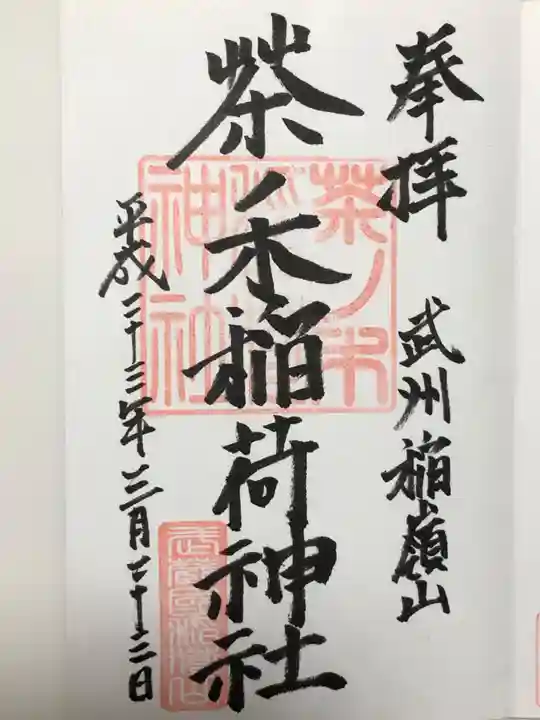 奉拝 武州稲嶺山
茶ノ木稲荷神社
平成二十三年三月二十二日
茶ノ木
稲荷
神社